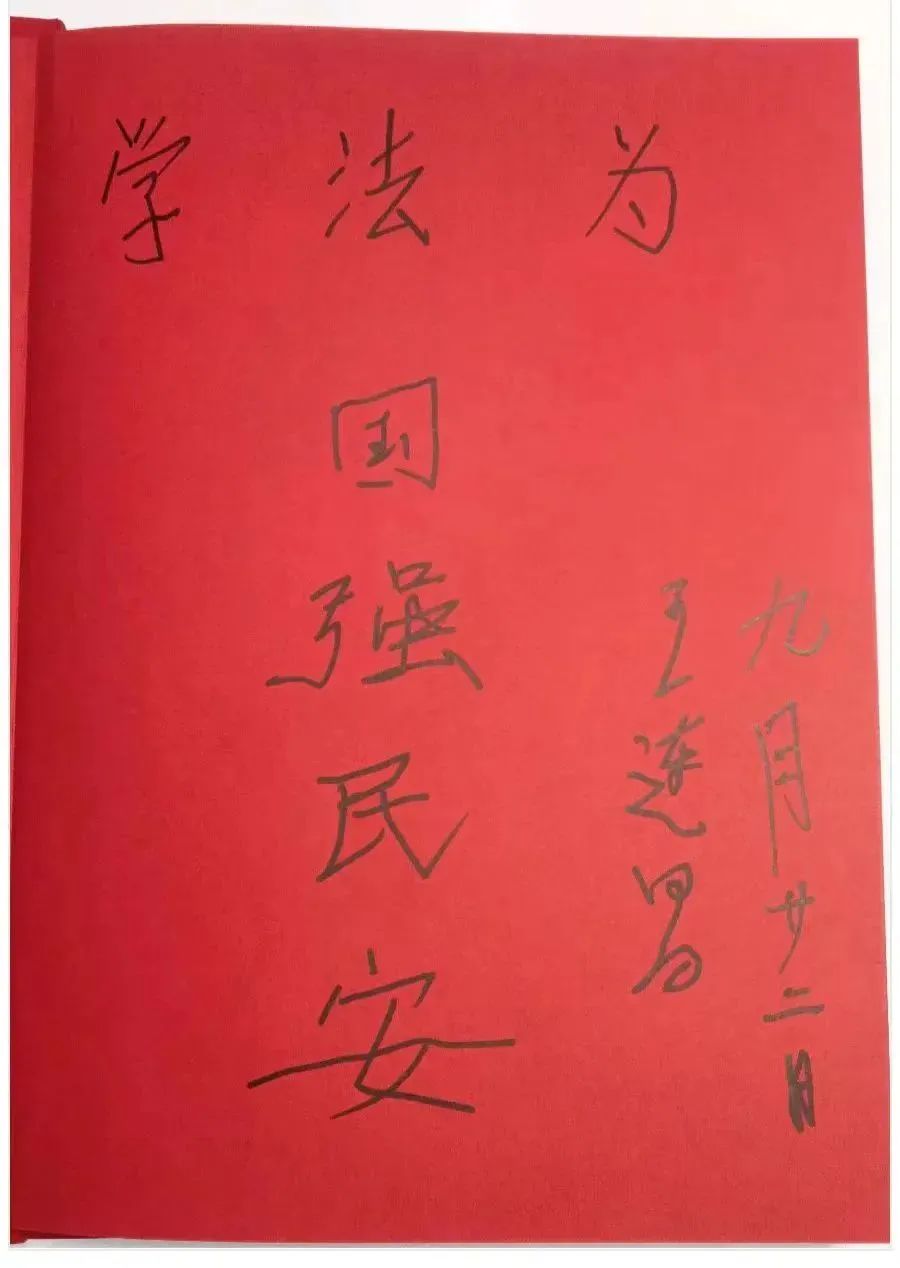 学法为
国强民安
王莲昌
九月廿二日